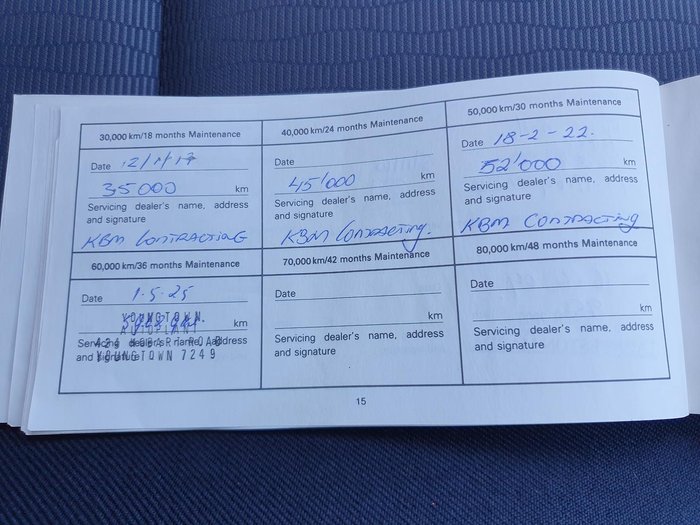 30,000 km/18 months Maintenance
Date 12/1/17
35000 km
Servicing dealer's name, address
and signature
KBM CONTRACTING
40,000 km/24 months Maintenance
Date
45'000 km
Servicing dealer's name, address
and signature
KBM CONTRACTING.
50,000 km/30 months Maintenance
Date 18-2-22.
52'000 km
Servicing dealer's name, address
and signature
KBM CONTRACTING
60,000 km/36 months Maintenance
Date 1.5.25
km
YOUNGTOWN
Servicing dealer's name, address
424 HOBART ROAD
and signature
YOUNGTOWN 7249
70,000 km/42 months Maintenance
Date
km
Servicing dealer's name, address
and signature
80,000 km/48 months Maintenance
Date
km
Servicing dealer's name, address
and signature
15